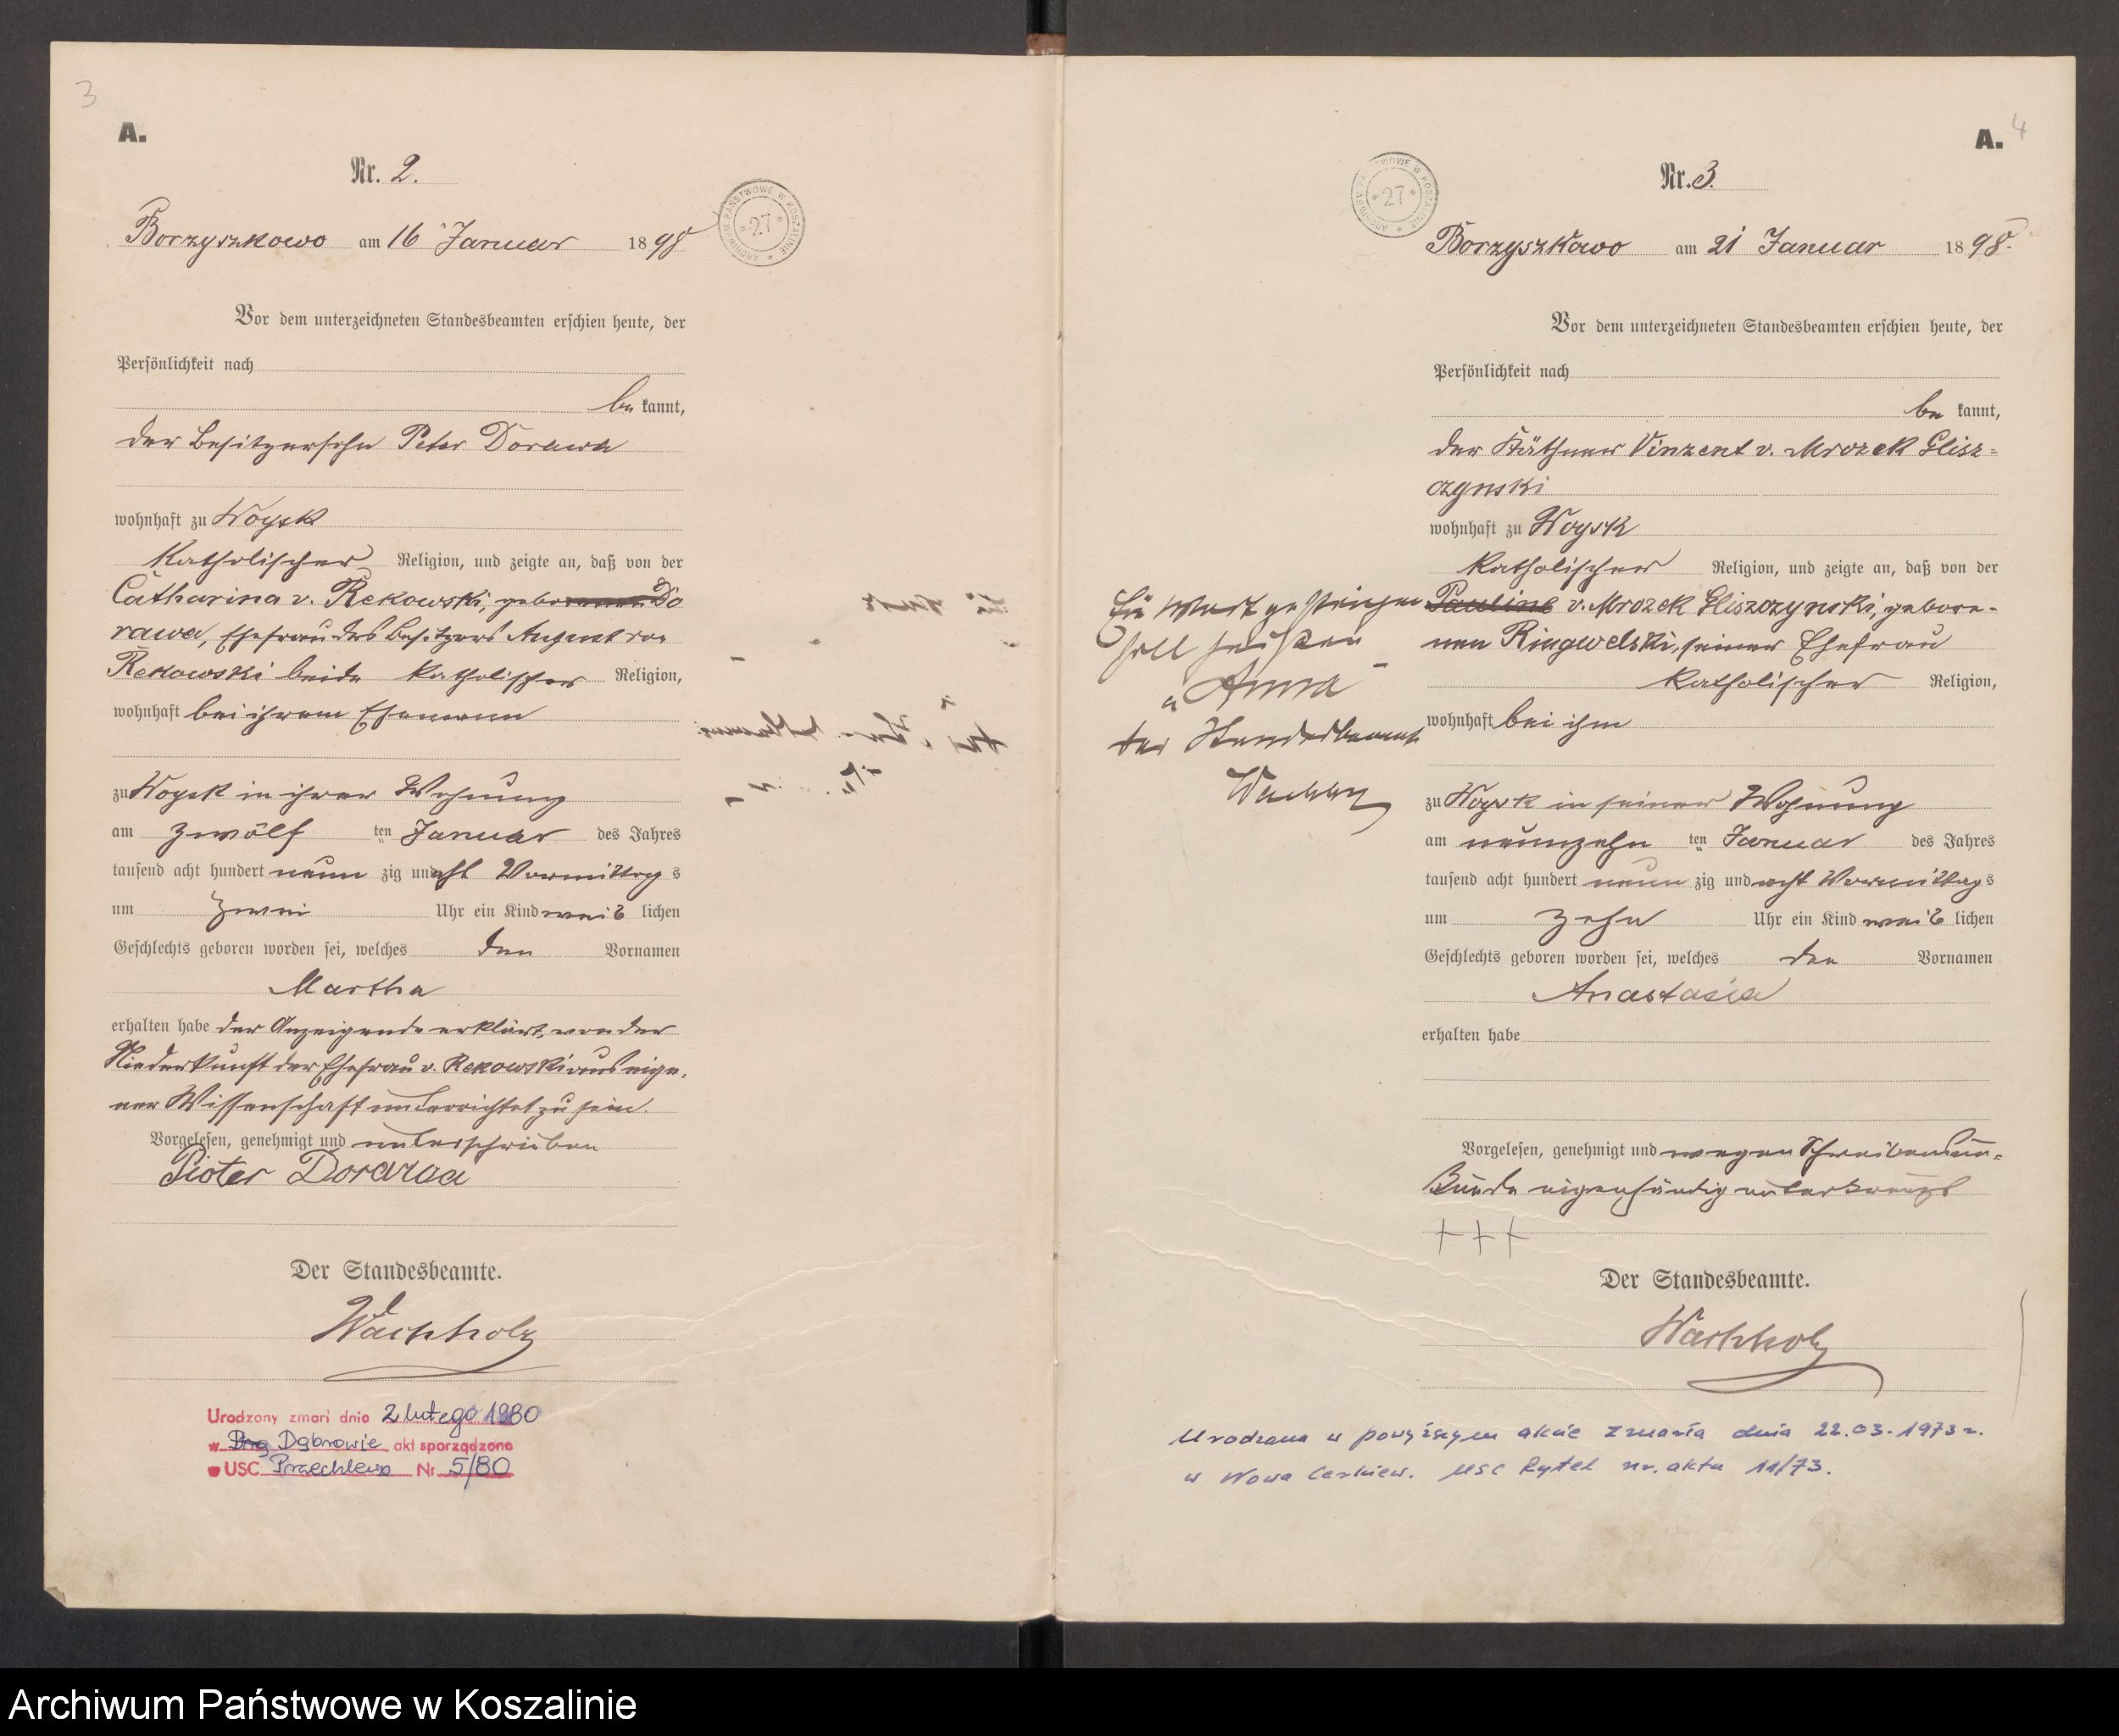 3
A.
Nr. 2.
ARCHIWUM PAŃSTWOWE W KOSZALINIE
* 27 *
Borzyszkowo am 16 Januar 1898
Vor dem unterzeichneten Standesbeamten erschien heute, der
Persönlichkeit nach
be kannt,
der Besitzersohn Peter Dorawa
wohnhaft zu Woysk
katholischer Religion, und zeigte an, daß von der
Catharina v. Rekowski, geborenen Do
rawa, Ehefrau des Besitzers August von
Rekowski beide katholischer Religion,
wohnhaft bei ihrem Ehemann
zu Woysk in ihrer Wohnung
am zwölf ten Januar des Jahres
tausend acht hundert neun zig und acht Vormittag s
um zwei Uhr ein Kind weib lichen
Geschlechts geboren worden sei, welches den Vornamen
Martha
erhalten habe der Anzeigende erklärt, von der
Niederkunft der Ehefrau v. Rekowski aus eige-
ner Wissenschaft unterrichtet zu sein.
Vorgelesen, genehmigt und unterschrieben
Pioter Dorawa
Der Standesbeamte.
Wachholz
Urodzony zmarł dnia 2 lutego 1980
w Dąbrowie akt sporządzono
USC Przechlewo Nr 5/80
4
A.
Nr. 3.
* 27 *
Borzyszkowo am 21 Januar 1898.
Vor dem unterzeichneten Standesbeamten erschien heute, der
Persönlichkeit nach
be kannt,
der Käthner Vinzent v. Mrozek Glisz-
czynski
wohnhaft zu Woysk
katholischer Religion, und zeigte an, daß von der
Pauline v. Mrozek Gliszczynski, gebore-
nen Ringwelski, seiner Ehefrau
katholischer Religion,
wohnhaft bei ihm
zu Woysk in seiner Wohnung
am neunzehn ten Januar des Jahres
tausend acht hundert neun zig und acht Vormittag s
um zehn Uhr ein Kind weib lichen
Geschlechts geboren worden sei, welches den Vornamen
Anastasia
erhalten habe
Vorgelesen, genehmigt und wegen Schreibensun-
kunde eigenhändig unterkreuzt
+++
Der Standesbeamte.
Wachholz
Ein Wort gestrichen
soll heißen
"Anna"
der Standesbeamte
Wachholz
Urodzona w powyższym akcie zmarła dnia 22.03.1973 r.
w Nowa Cerkiew. USC Rytel nr. aktu 11/73.
Archiwum Państwowe w Koszalinie